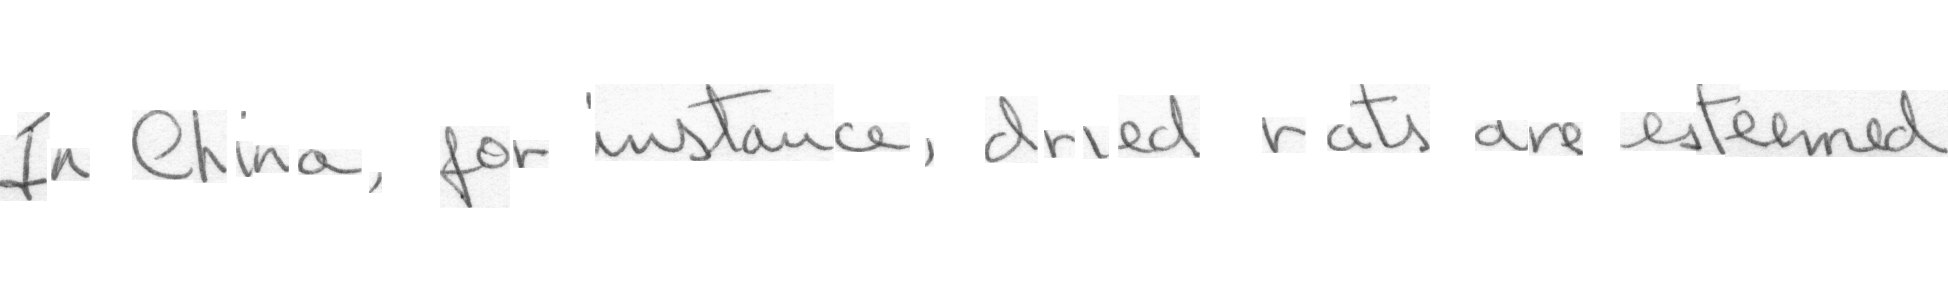 In China, for instance, dried rats are esteemed